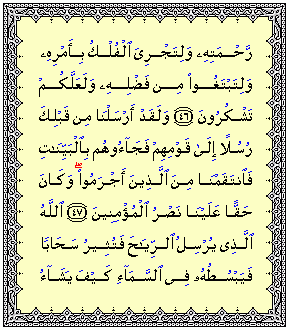 رَّحْمَتِهِۦ وَلِتَجْرِىَ ٱلْفُلْكُ بِأَمْرِهِۦ
وَلِتَبْتَغُوا۟ مِن فَضْلِهِۦ وَلَعَلَّكُمْ
تَشْكُرُونَ ﴿٤٦﴾ وَلَقَدْ أَرْسَلْنَا مِن قَبْلِكَ
رُسُلًا إِلَىٰ قَوْمِهِمْ فَجَآءُوهُم بِٱلْبَيِّنَـٰتِ
فَٱنتَقَمْنَا مِنَ ٱلَّذِينَ أَجْرَمُوا۟ ۖ وَكَانَ
حَقًّا عَلَيْنَا نَصْرُ ٱلْمُؤْمِنِينَ ﴿٤٧﴾ ٱللَّهُ
ٱلَّذِى يُرْسِلُ ٱلرِّيَـٰحَ فَتُثِيرُ سَحَابًا
فَيَبْسُطُهُۥ فِى ٱلسَّمَآءِ كَيْفَ يَشَآءُ